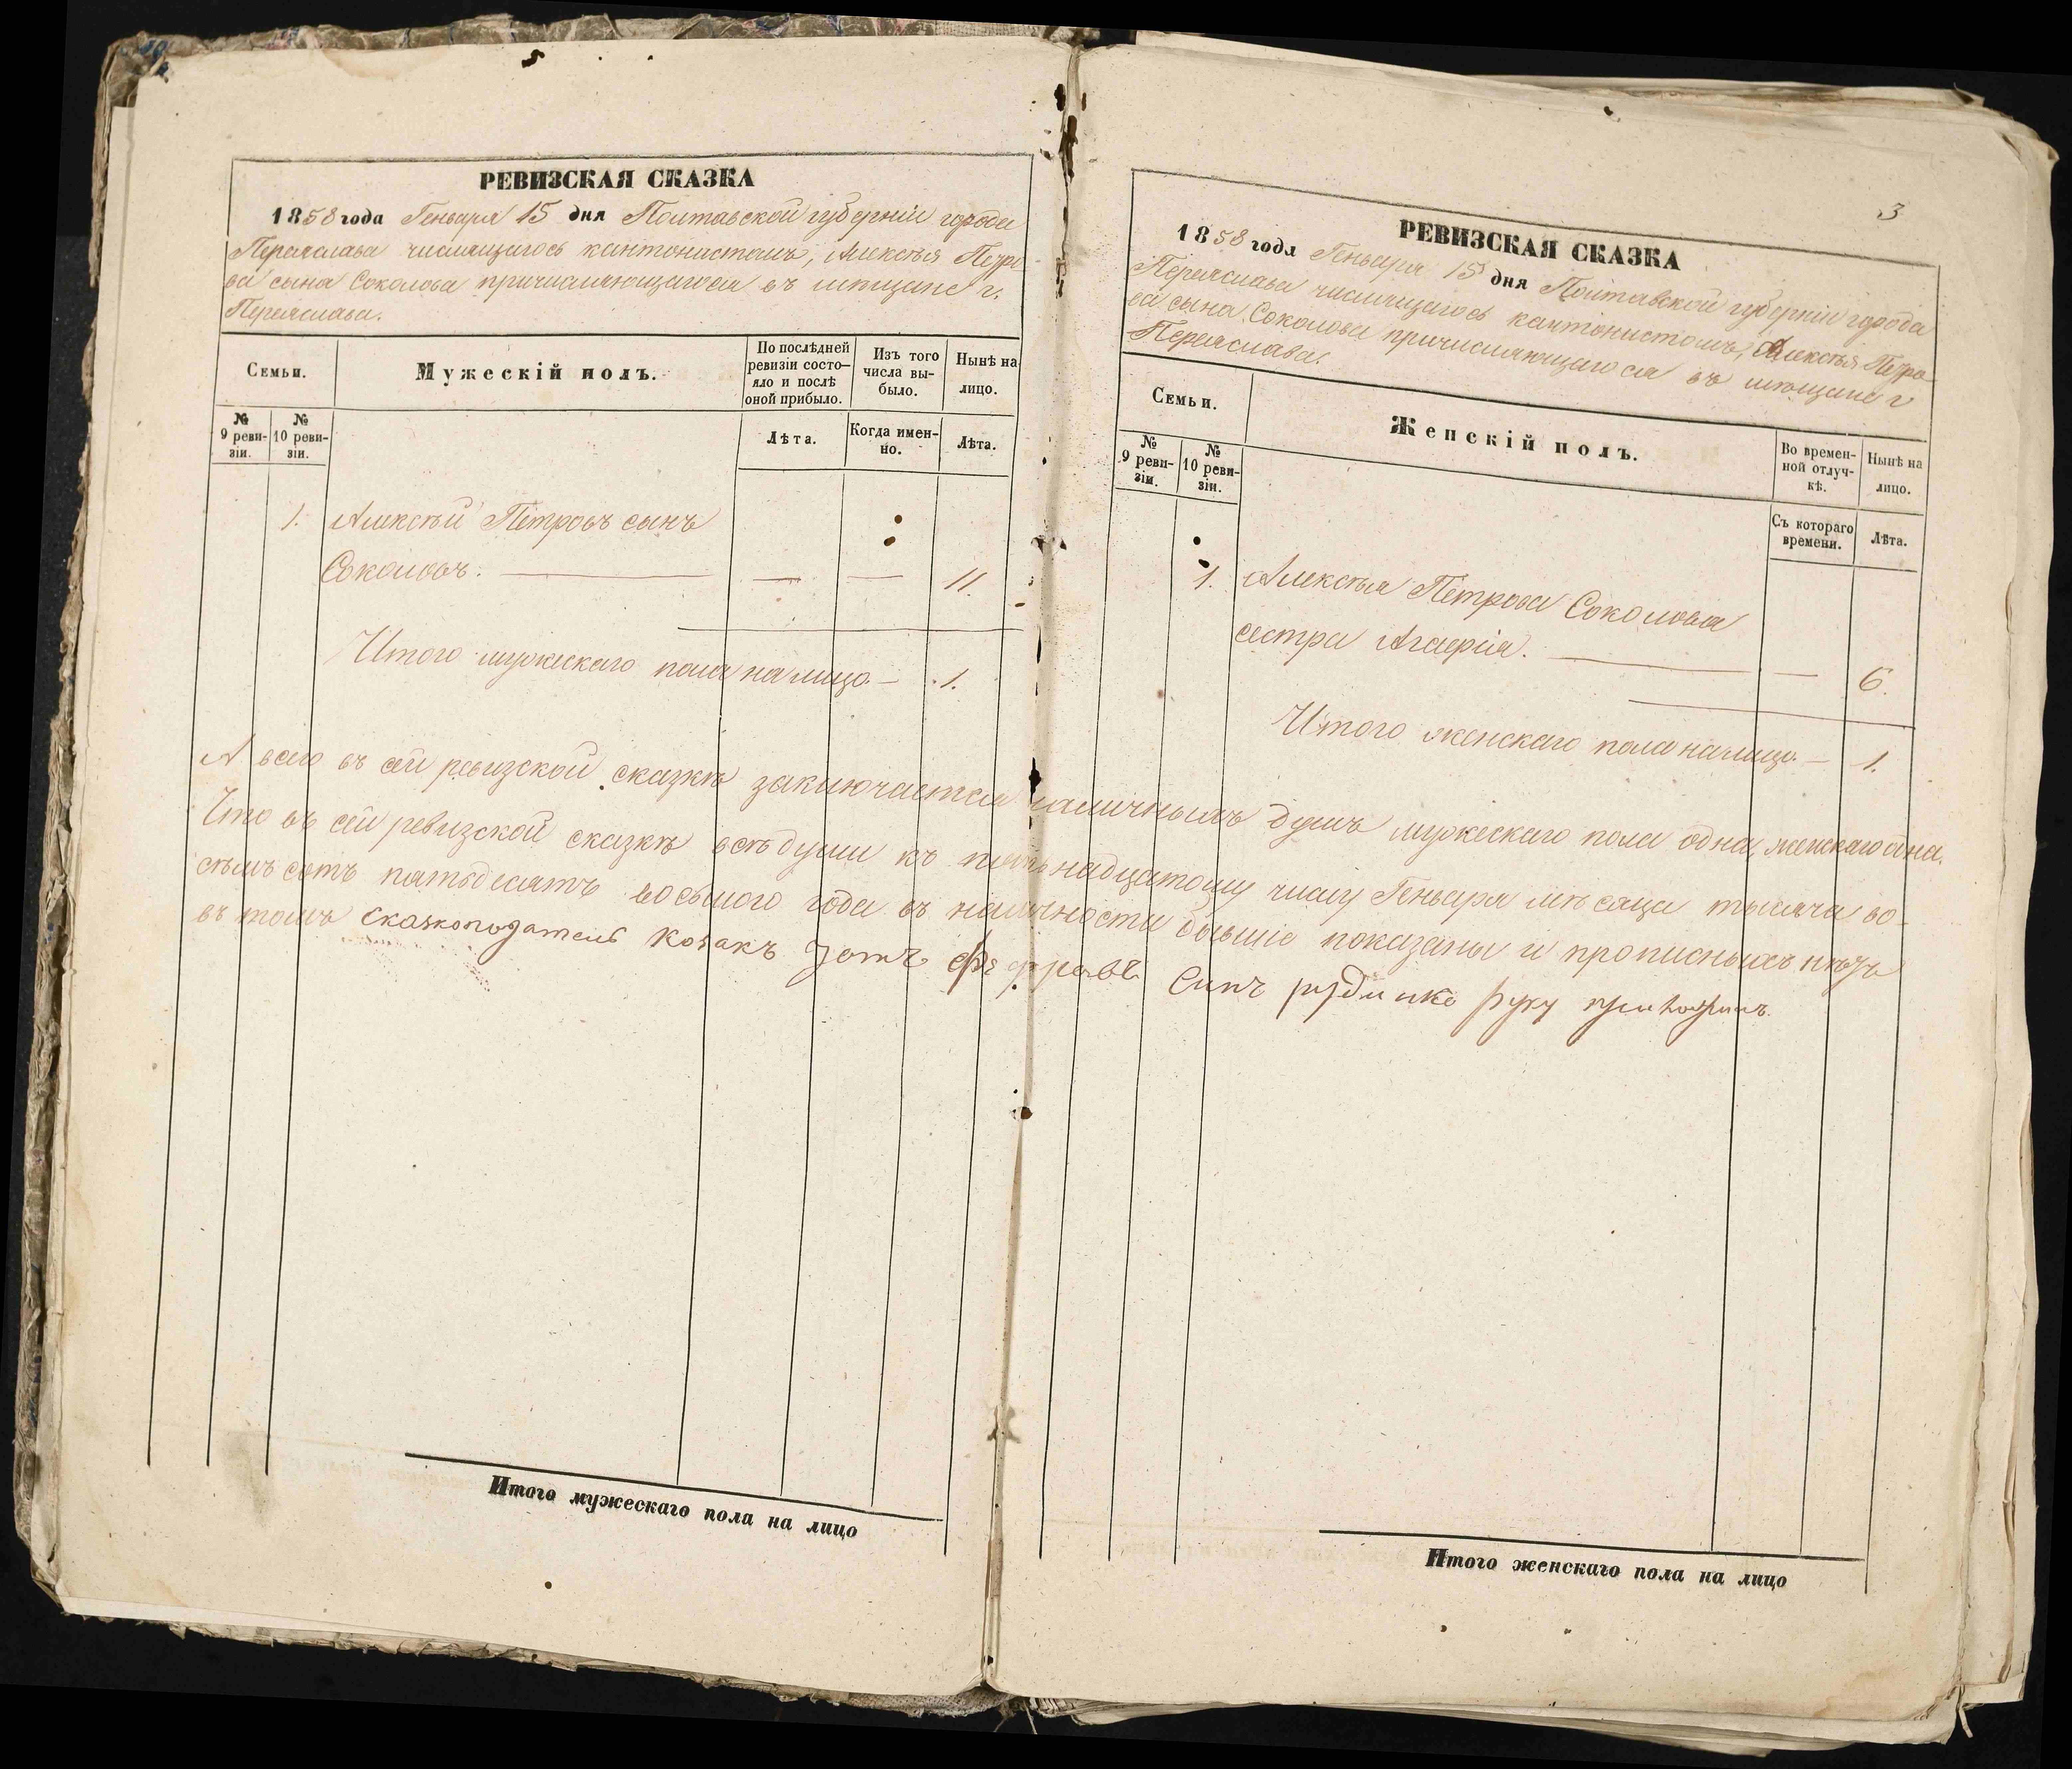 РЕВИЗСКАЯ СКАЗКА
1858 года Генваря 15 дня Полтавской губерніи города
Переяслава числящагось кантонистомъ, Алексѣя Петро
ва сына Соколова причисляющагося въ мещане г.
Переяслава.
Семьи.
Мужескій полъ.
По послѣдней
ревизіи состо—
яло и послѣ
оной прибыло.
Изъ того
числа вы-
было.
Нынѣ на
лицо.
№
9 реви-
зіи.
№
10 реви-
зіи.
Лѣта.
Когда имен-
но.
Лѣта.
1. Алексѣй Петровъ сынъ
Соколовъ. — — — 11.
Итого мужескаго пола на лицо. — 1.
3
РЕВИЗСКАЯ СКАЗКА
1858 года Генваря 15 дня Полтавской губерніи города
Переяслава числящагось кантонистомъ, Алексѣя Петро
ва сына Соколова причисляющагося въ мещане г
Переяслава.
Семьи.
Женскій полъ.
Во времен-
ной отлуч-
кѣ.
Нынѣ на
лицо.
№
9 реви-
зіи.
№
10 реви-
зіи.
Съ котораго
времени.
Лѣта.
1. Алексѣя Петрова Соколова
сестра — — 6.
Итого женскаго пола на лицо. — 1.
А всего въ сей ревизской сказкѣ заключается наличныхъ душъ мужескаго пола одна, женскаго одна.
Что въ сей ревизской сказкѣ всѣ души къ пятнадцатому числу Генваря мѣсяца тысяча во-
сѣмъ сотъ пятьдесятъ восьмого года въ наличности бывшіе показаны и прописныхъ нѣтъ
въ томъ сказкоподатель козакъ синъ руку
Итого мужескаго пола на лицо
Итого женскаго пола на лицо